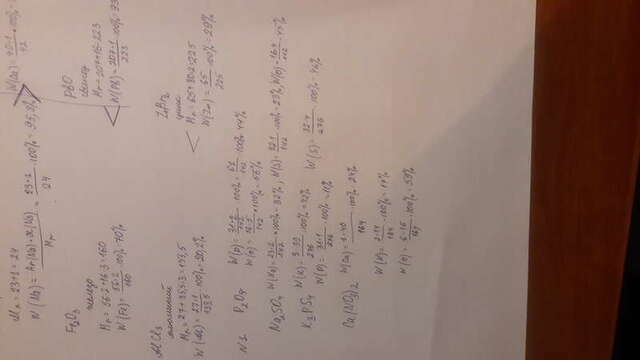 Mr = 23+1 = 24
W (Na) = Ar(Na)·x(Na) / Mr = 23·1 / 24 · 100% = 95,8%
W(Ca) = 40·1 / 42 · 100% =
Fe2O3
железо
Mr = 56·2+16·3 = 160
W(Fe) = 56·2 / 160 · 100% = 70%
PbO
свинец
Mr = 207+16=223
W(Pb) = 207·1 / 223 · 100% = 93
AlCl3
алюминий
Mr = 27+35,5·3 = 133,5
W(Al) = 27·1 / 133,5 · 100% = 20,2%
ZnBr2
цинк
Mr = 65+80·2=225
W(Zn) = 65 / 225 · 100% = 29%
N1 P2O5 W(P) = 31·2 / 142 · 100% = 62 / 142 · 100% = 44%
W(O) = 16·5 / 142 · 100% = 56%
Na2SO4 W(Na) = 23·2 / 142 · 100% = 32%, W(S) = 32·1 / 142 · 100% = 23%, W(O) = 16·4 / 142 = 45%
K3PS4 W(K) = 3·39 / 276 · 100% = 42%
W(P) = 31·1 / 276 · 100% = 11%
W(S) = 32·4 / 276 · 100% = 46%
Ca(NO3)2 W(Ca) = 1·40 / 164 · 100% = 24%
W(N) = 2·14 / 164 · 100% = 17%
W(O) = 6·16 / 164 · 100% = 59%